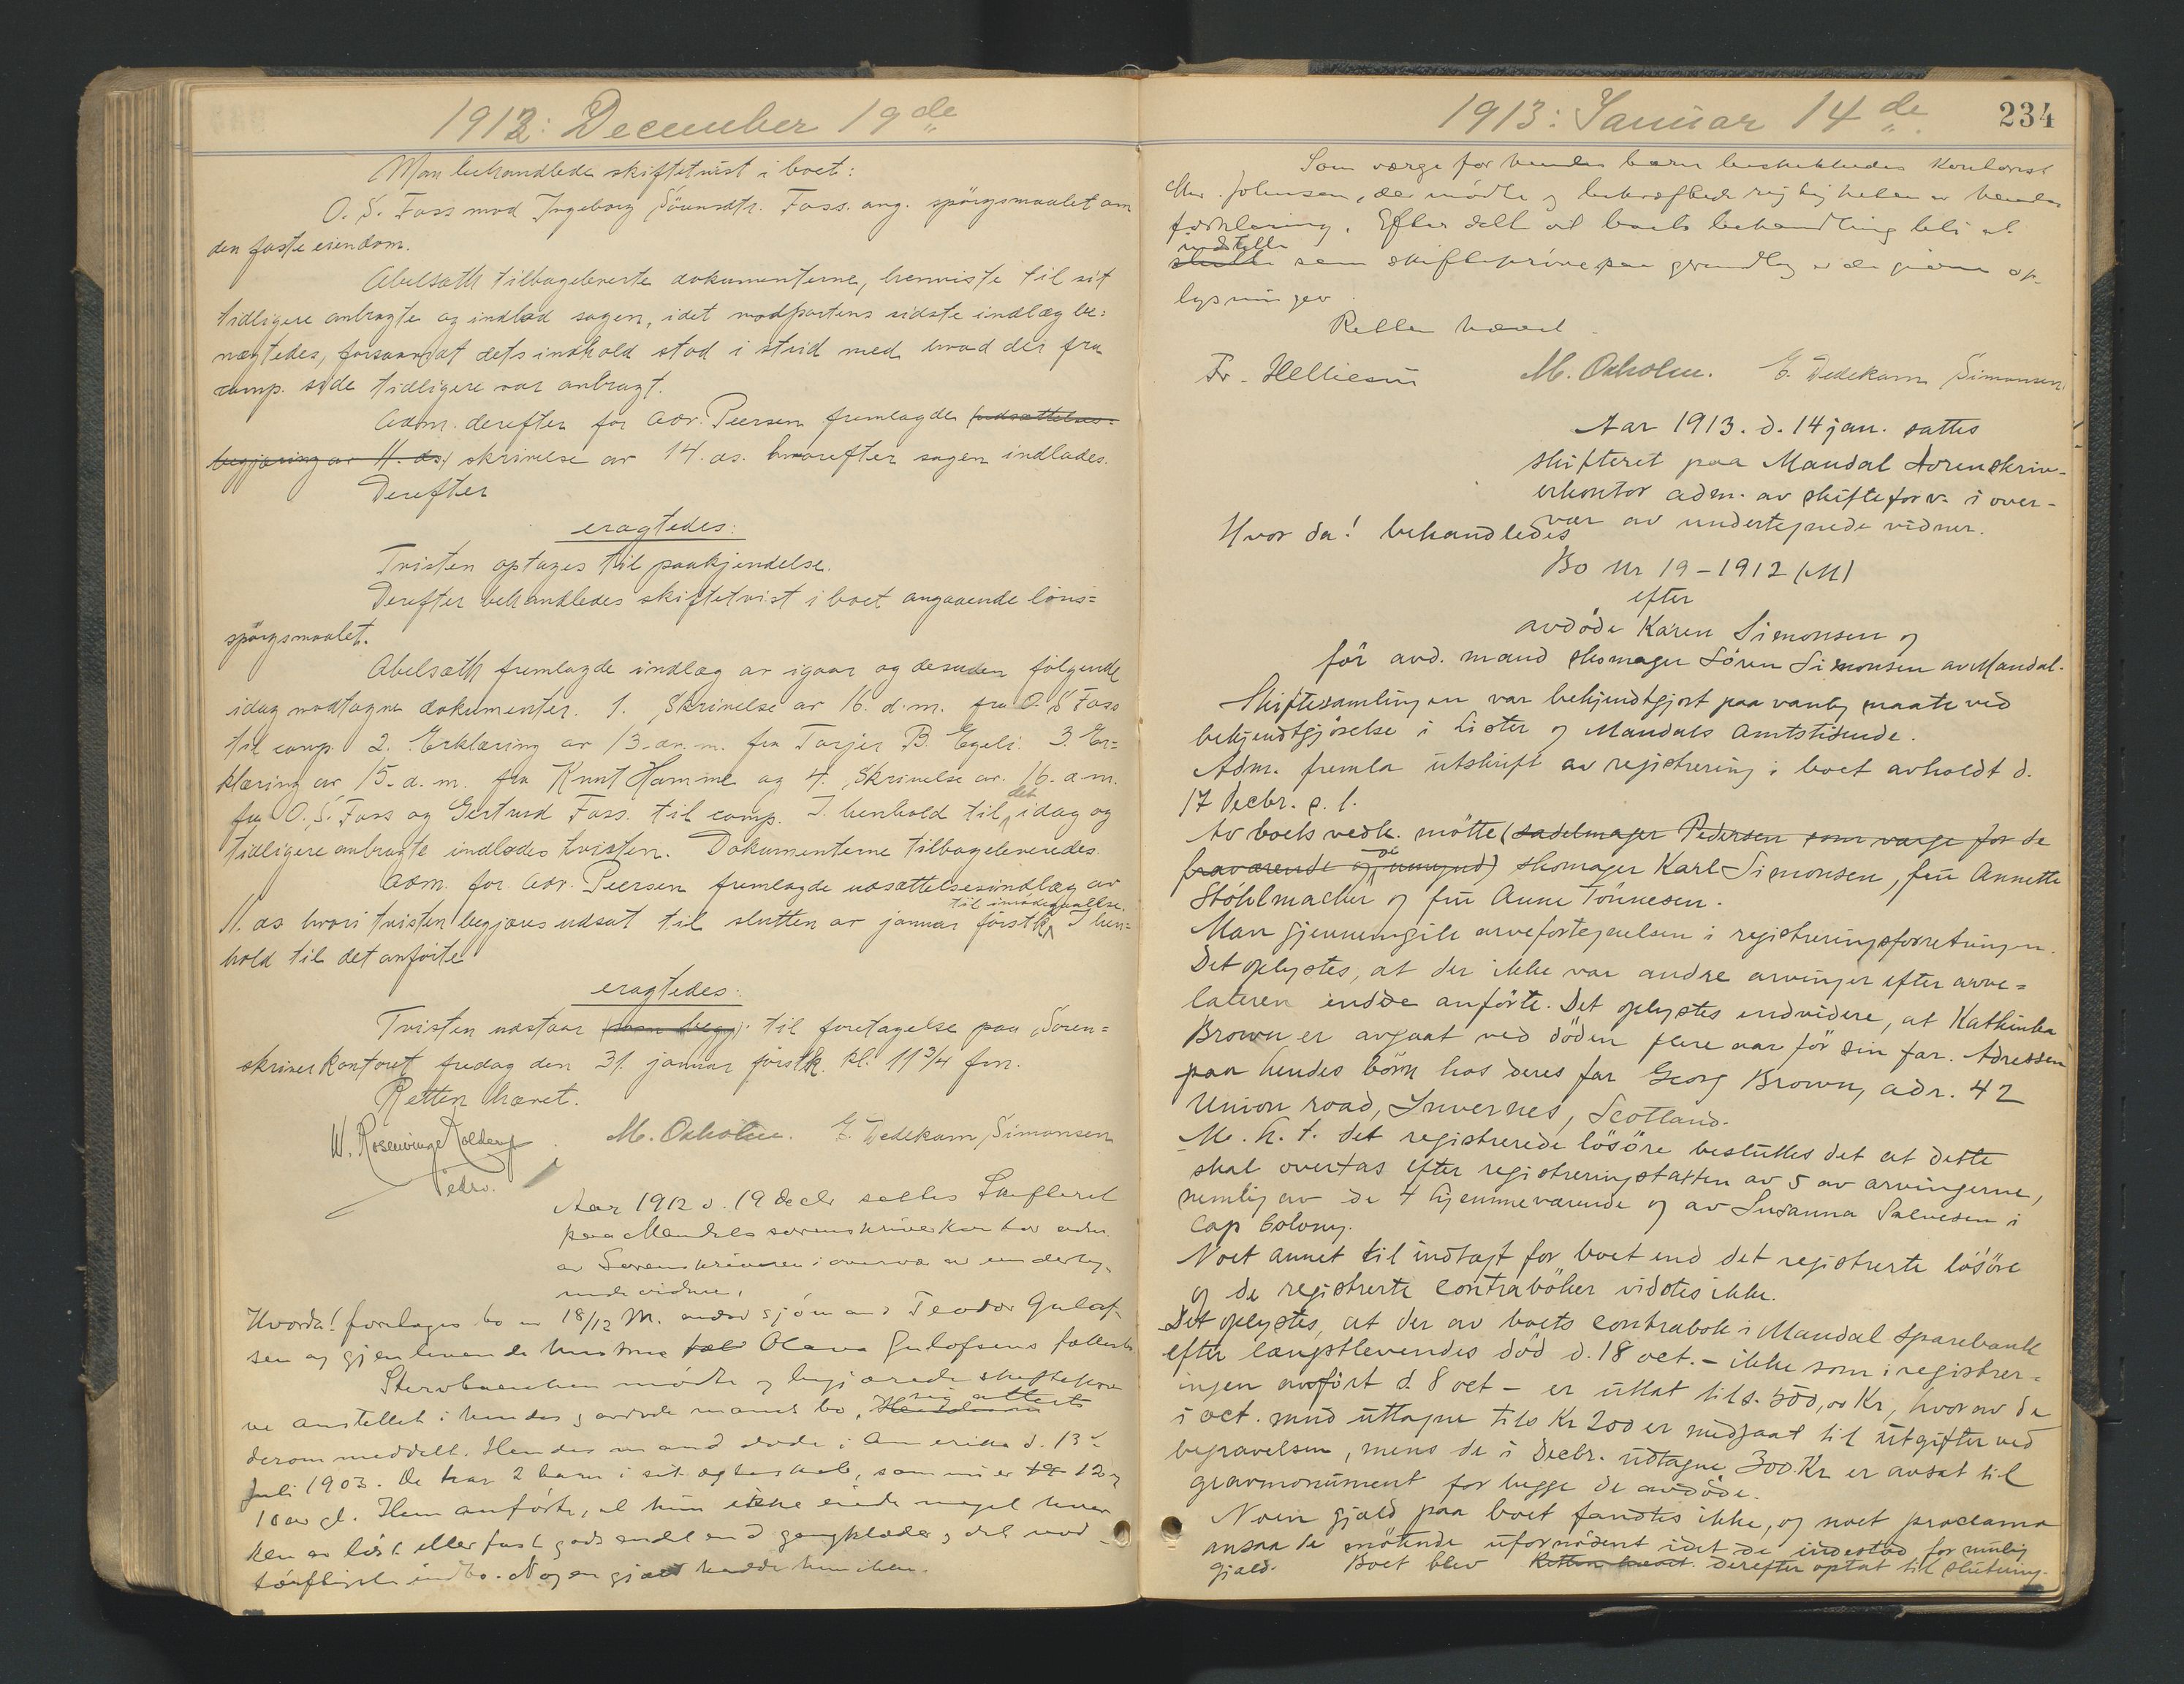 1912: December 19de
Man behandlede skiftetvist i boet:
O. S. Foss mod Ingeborg Sørensdtr. Foss. ang. spörgsmaalet om
den faste eiendom.
Abelsæth tilbageleverte dokumenterne, henviste til sit
tidligere anbragte og indlod sagen, idet modpartens sidste indlæg be=
nægtedes, forsaavidt dets indhold stod i strid med hvad der fra
comp. side tidligere var anbragt.
Adm. derefter for adv. Peersen fremlagde (udsættelses=
begjæring av 11. ds.) skrivelse av 14. ds. hvorefter sagen indlodes.
Derefter
eragtedes:
Tvisten optages til paakjendelse.
Derefter behandledes skiftetvist i boet angaaende löns=
spörgsmaalet.
Abelsæth fremlagde indlæg av igaar og desuden fölgende
idag modtagne dokumenter. 1. Skrivelse av 16. d.m. fra O. S Foss
til comp. 2. Erklæring av 13. ds. m. fra Tarjer B. Egeli. 3. Er=
klæring av 15. d. m. fra Knut Homme og 4. Skrivelse av. 16. d. m.
fra O. S. Foss og Gertrud Foss. til comp. I henhold til det idag og
tidligere anbragte indlodes tvisten. Dokumenterne tilbageleveredes.
Adm. for Adv. Peersen fremlagde udsættelsesindlæg av
11. ds hvori tvisten begjæres udsat til slutten av januar förstk. til imödegaaelse. I hen=
hold til det anförte
eragtedes:
Tvisten udstaar (som begj.) til foretagelse paa Sören=
skriverkontoret fredag den 31. januar förstk. kl. 11 3/4 fm.
Retten hævet.
W. Rosenvinge Kolderup M. Oxholm. E. Dedekam Simonsen
Aar 1912 d. 19 decbr sattes Skifteret
paa Mandals sorenskriverkontor adm.
av Sorenskriveren i overvær av underteg-
nede vidner.
Hvorda! foretages bo nr 18/12 M. sjömand Teodor Gulof-
sen og gjenlevende hustru Olava Gulofsens fællesbo.
mödte og begjærede
anstillet i hendes avdöde mands bo, attest
derom meddelt. Hendes mand döde i Amerika d. 13de
Juli 1903. De har 2 barn i sit ægteskab, som nu er 12 og
10 aar gl. Hun anförte, at hun ikke eiede noget hver-
ken av löst eller fast gods andet end gangklæder og det nöd-
törftigste indbo. Nogen gjæld hadde hun ikke.
1913: Januar 14de.
234
Som værge for hendes barn beskikkedes Kontorist
Johnsen, der mödte og bekræftede rigtigheten av hendes
forklaring. Efter dette vil boets behandling bli at
indstille som paa grundlag av de givne op-
lysninger.
Retten hævet.
Fr. Helliesen M. Oxholm. E. Dedekam Simonsen.
Aar 1913. d. 14 jan. sattes
skifteret paa Mandal sorenskriv-
erkontor adm. av skifteforv. i over-
vær av undertegnede vidner.
Hvor da! behandledes
Bo Nr 19-1912 (M)
efter
avdöde Karen Simonsen og
för avd. mand skomager Sören Simonsen av Mandal.
Skiftesamlingen var bekjendtgjort paa vanlig maate ved
bekjendtgjörelse i Lister og Mandals Amtstidende.
Adm. fremla utskrift av registrering i boet avholdt d.
17 Decbr. s. l.
Av boets vedk. mötte (sadelmager Pedersen som værge for de
fraværende og de umynd.) skomager Karl Simonsen, frü Annette
Stöhlmacher og frü Anne Tönnesen.
Man gjennemgik arvefortegnelsen i registreringsforretningen.
Det oplystes, at der ikke var andre arvinger efter arve=
lateren end de anförte. Det oplystes endvidere, at Kathinka
Brown er avgaat ved döden flere aar för sin far. Adressen
paa hendes börn hos deres far Georg Brown, adr. 42
Union road, Invernes, Scotland.
M. h. t. det registrerede lösöre besluttes det at dette
skal overtas efter registreringstaxten av 5 av arvingerne,
nemlig av de 4 hjemmeværende og av Susanna Salvesen i
Cap Colony.
Noet annet til indtægt for boet end det registrerte lösöre
og de registrerte contraböker vidstes ikke.
Det oplystes, at der av boets contrabok i Mandal Sparebank
efter længstlevendes död d. 18 oct. – ikke som i registrer=
ingen anfört d. 8 oct – er üttat tils. 500,00 Kr, hvorav de
i oct. mnd üttagne tils Kr 200 er medgaat til ütgifter ved
begravelsen, mens de i Decbr. üdtagne 300 Kr er avsat til
gravmonüment for begge de avdöde.
Noen gjæld paa boet fandtes ikke, og noet proclama
ansaa de mötende ufornödent idet de indestod for mulig
gjæld. Boet blev Retten hævet. derefter optat til slütning.